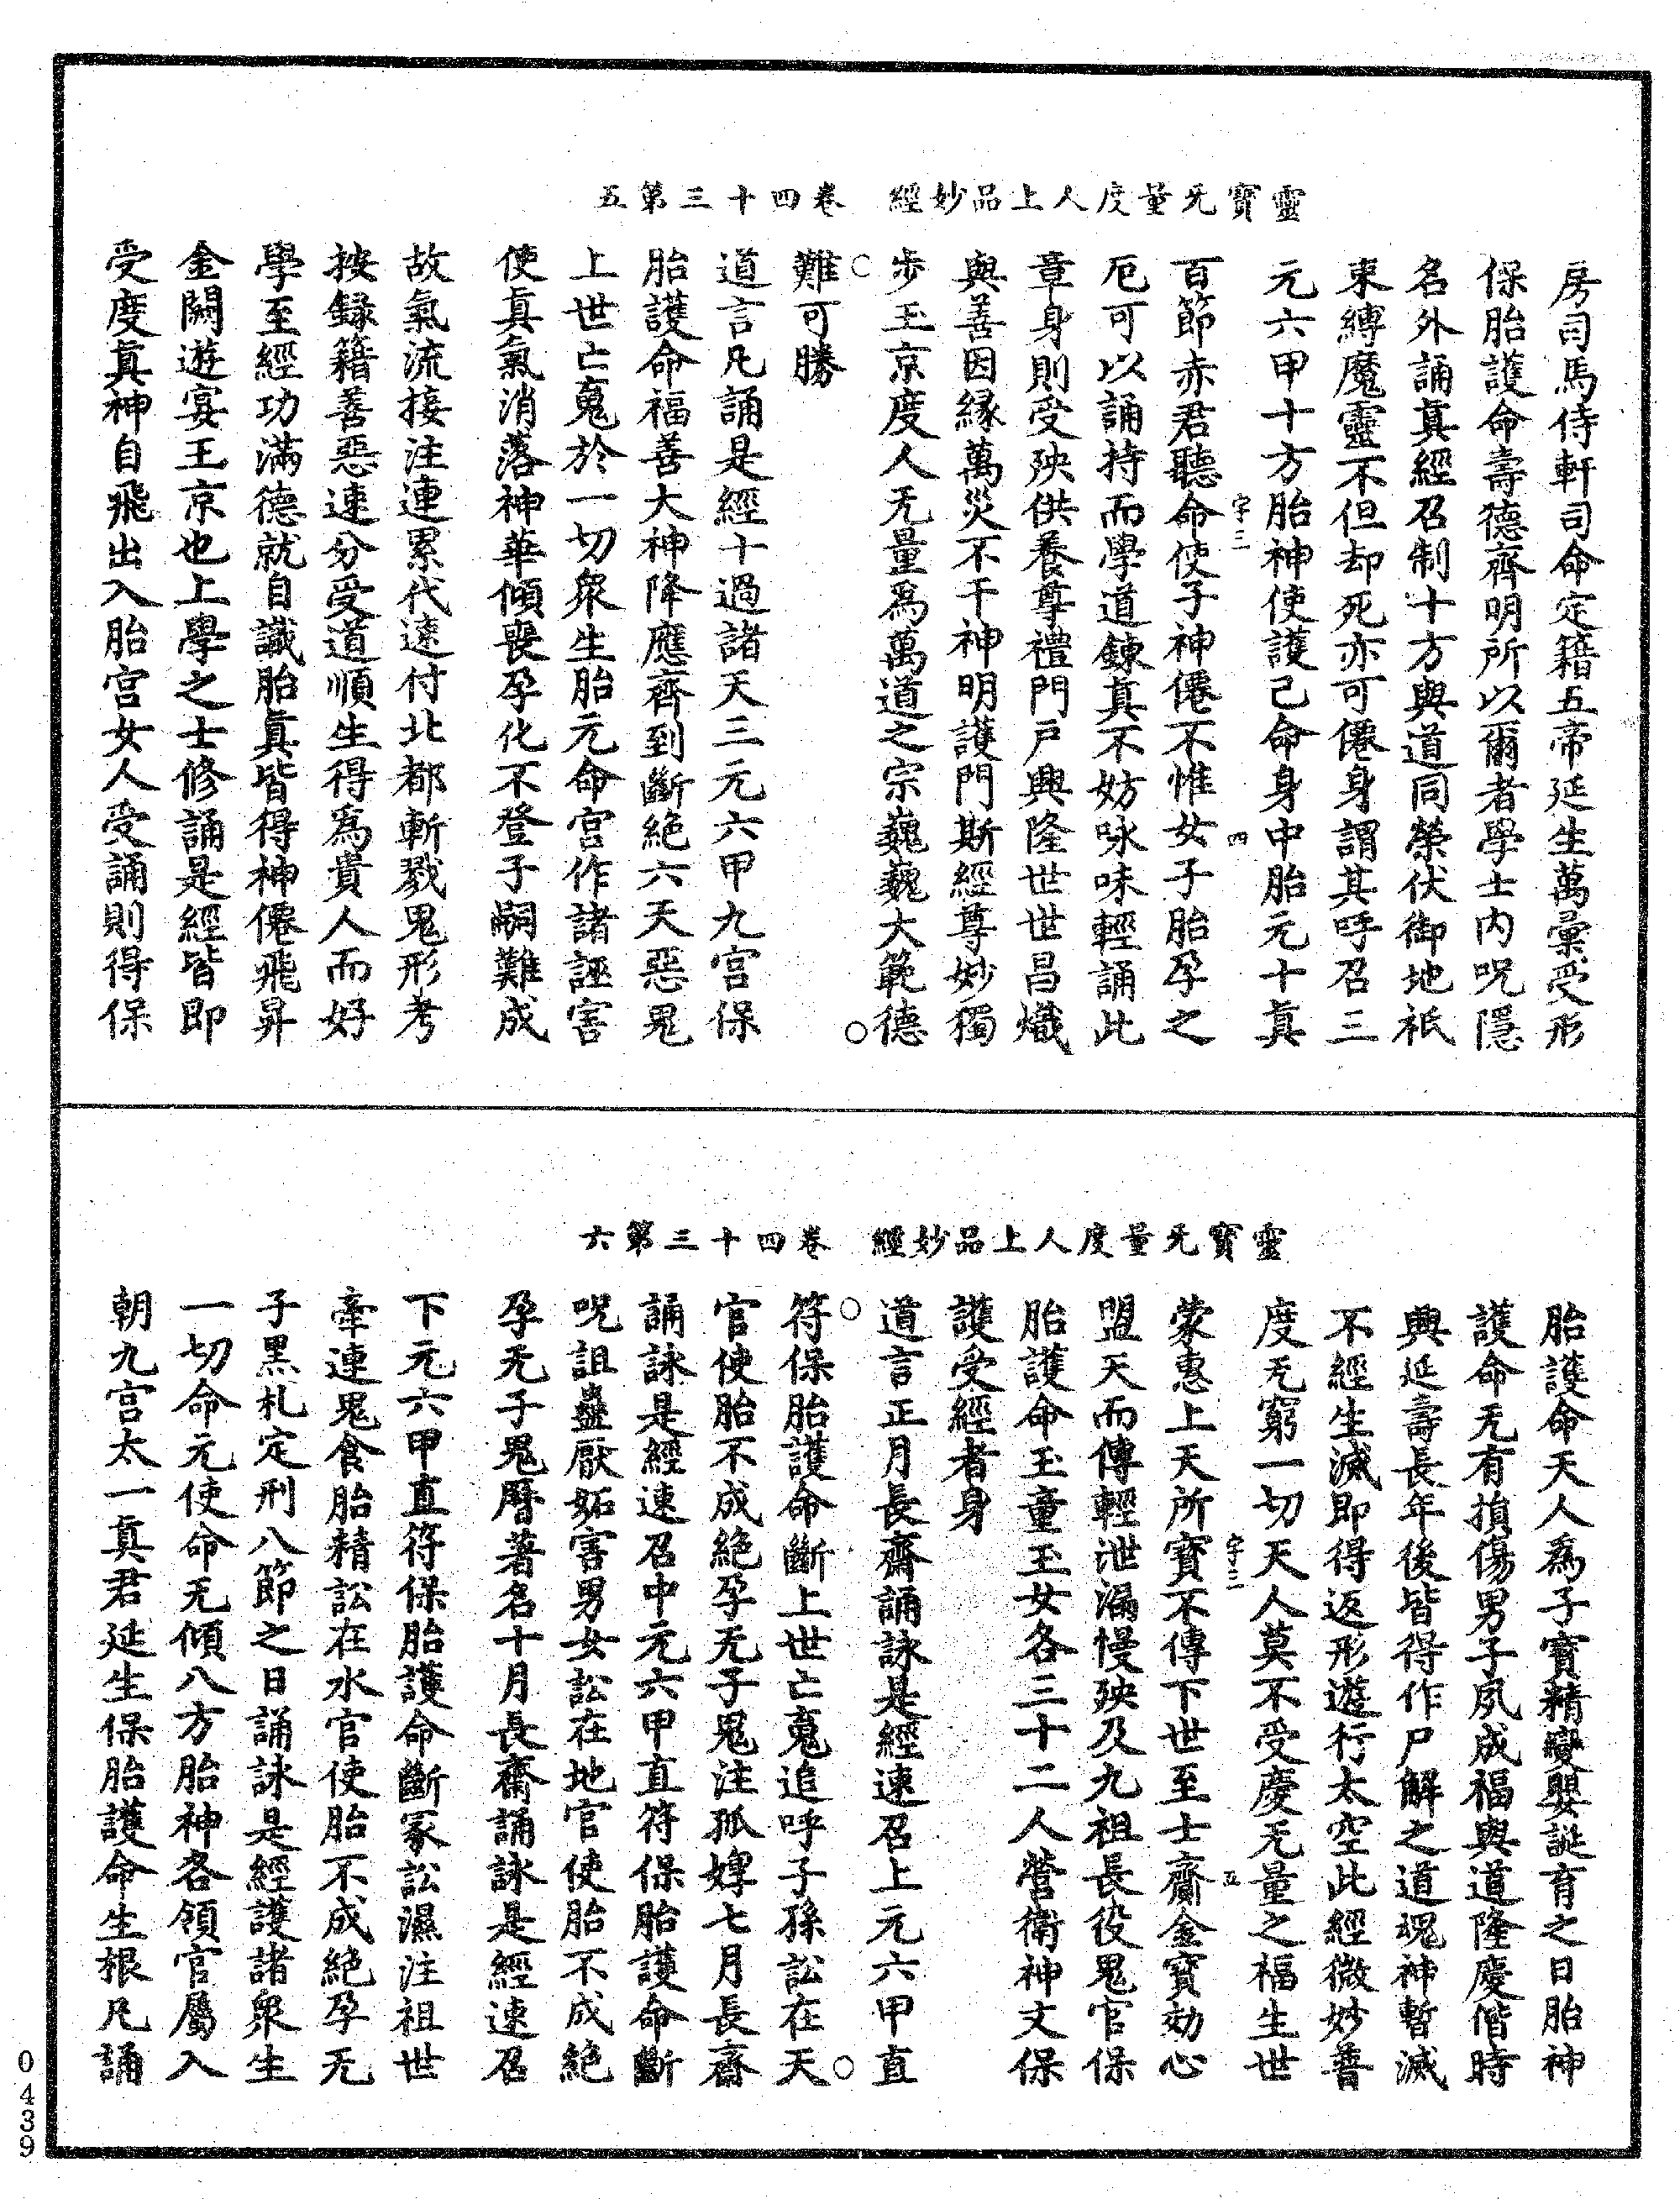 靈寶无量度人上品妙經　卷四十三第五
房司馬侍軒司命定籍五帝延生萬彙受形
保胎護命壽德齊明所以爾者學士内呪隱
名外誦真經召制十方與道同榮伏御地祇
束縛魔靈不但却死亦可僊身謂其呼召三
元六甲十方胎神使護己命身中胎元十真
字三　四
百節赤君聽命使子神僊不惟女子胎孕之
厄可以誦持而學道鍊真不妨咏味輕誦此
章身則受殃供養尊禮門戸興隆世世昌熾
與善因縁萬災不干神明護門斯經尊妙獨
步玉京度人无量爲萬道之宗巍巍大範德
難可勝
道言凡誦是經十過諸天三元六甲九宫保
胎護命福善大神降應齊到斷絶六天惡鬼
上世亡䰟於一切衆生胎元命宫作諸誣害
使真氣消落神華傾喪孕化不登子嗣難成
故氣流接注連累代速付北都斬戮鬼形考
按録籍善惡速分受道順生得爲貴人而好
學至經功滿德就自識胎真皆得神僊飛昇
金闕遊宴玉京也上學之士修誦是經皆即
受度真神自飛出入胎宫女人受誦則得保
靈寶无量度人上品妙經　卷四十三第六
胎護命天人爲子寶精變嬰誕育之日胎神
護命无有損傷男子夙成福與道隆慶偕時
興延壽長年後皆得作尸解之道魂神暫滅
不經生滅即得返形遊行太空此經微妙普
度无窮一切天人莫不受慶无量之福生世
字三　五
蒙惠上天所寶不傳下世至士齎金寶効心
盟天而傳輕泄漏慢殃及九祖長役鬼官保
胎護命玉童玉女各三十二人營衛神文保
護受經者身
道言正月長齋誦詠是經速召上元六甲直
符保胎護命斷上世亡䰟追呼子孫訟在天
官使胎不成絶孕无子鬼注孤婢七月長齋
誦詠是經速召中元六甲直符保胎護命斷
呪詛蠱厭妬害男女訟在地官使胎不成絶
孕无子鬼曆著名十月長齋誦詠是經速召
下元六甲直符保胎護命斷冢訟濕注祖世
牽連鬼食胎精訟在水官使胎不成絶孕无
子黑札定刑八節之日誦詠是經護諸衆生
一切命元使命无傾八方胎神各領官屬入
朝九宫太一真君延生保胎護命生根凡誦
0439